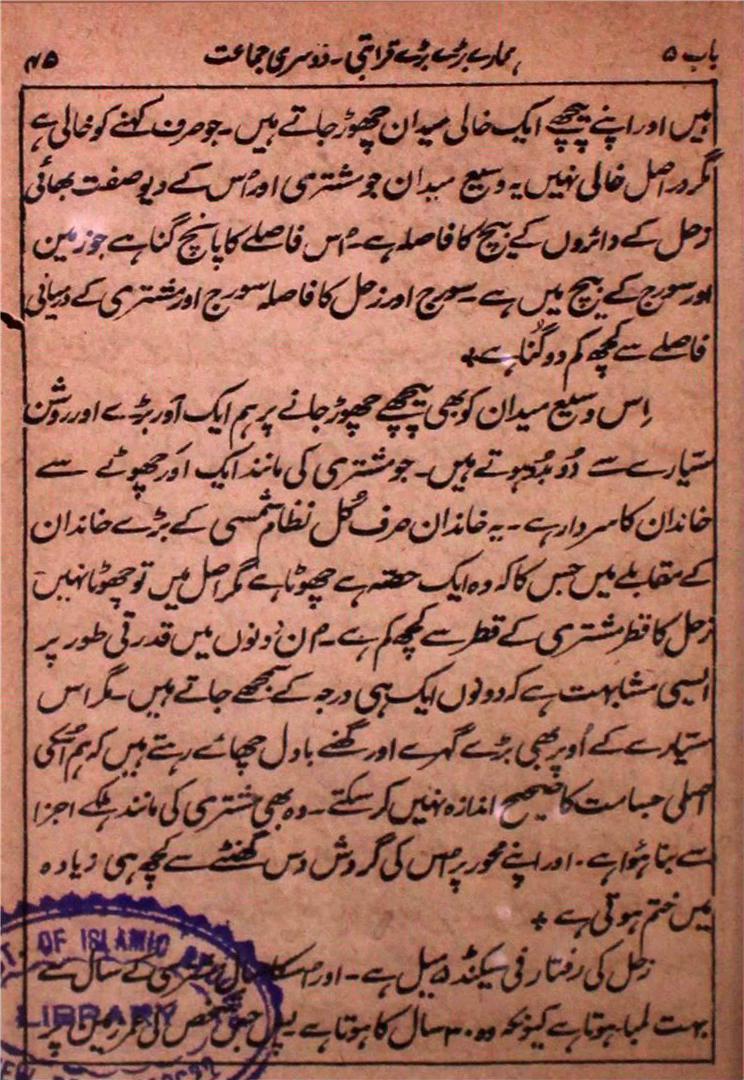 باب ۵
ہمارے بڑے بڑے قرابتی۔ دوسری جماعت
۴۵
ہیں اور اپنے پیچھے ایک خالی میدان چھوڑ جاتے ہیں۔ جو صرف کہنے کو خالی ہے
مگر دراصل خالی نہیں یہ وسیع میدان جو مشتری اور اُس کے دیو صفت بھائی
زحل کے دائروں کے بیچ کا فاصلہ ہے۔ اُس فاصلے کا پانچ گنا ہے جو زمین
اور سورج کے بیچ میں ہے۔ سورج اور زحل کا فاصلہ سورج اور مشتری کے درمیانی
فاصلے سے کچھ کم دو گُنا ہے٭
اِس وسیع میدان کو بھی پیچھے چھوڑ جانے پر ہم ایک اَور بڑے اور روشن
ستیارے سے دُو بدُو ہوتے ہیں۔ جو مشتری کی مانند ایک اَور چھوٹے سے
خاندان کا سردار ہے۔ یہ خاندان صرف کُل نظام شمسی کے بڑے خاندان
کے مقابلے میں جس کا کہ وہ ایک حصّہ ہے چھوٹا ہے مگر اصل میں تو چھوٹا نہیں
زحل کا قطر مشتری کے قطر سے کچھ کم ہے۔ اِن دونوں میں قدرتی طور پر
ایسی مشابہت ہے کہ دونوں ایک ہی درجہ کے سمجھے جاتے ہیں۔ مگر اس
ستیارے کے اُوپر بھی بڑے گہرے اور گھنے بادل چھائے رہتے ہیں کہ ہم اُسکی
اصلی جسامت کا صحیح اندازہ نہیں کر سکتے۔ وہ بھی مشتری کی مانند ہلکے اجزا
سے بنا ہؤا ہے۔ اور اپنے محور پر اُس کی گردش دس گھنٹے سے کچھ ہی زیادہ
میں ختم ہوتی ہے ٭
زحل کی رفتار فی سیکنڈ ۵ میل ہے۔ اور اُسکا سال مشتری کے سال سے
بہت لمبا ہوتا ہے کیونکہ وہ ۳۰ سال کا ہوتا ہے جس شخص کی عمر زمین پر
OF ISLAMIC
LIBRARY